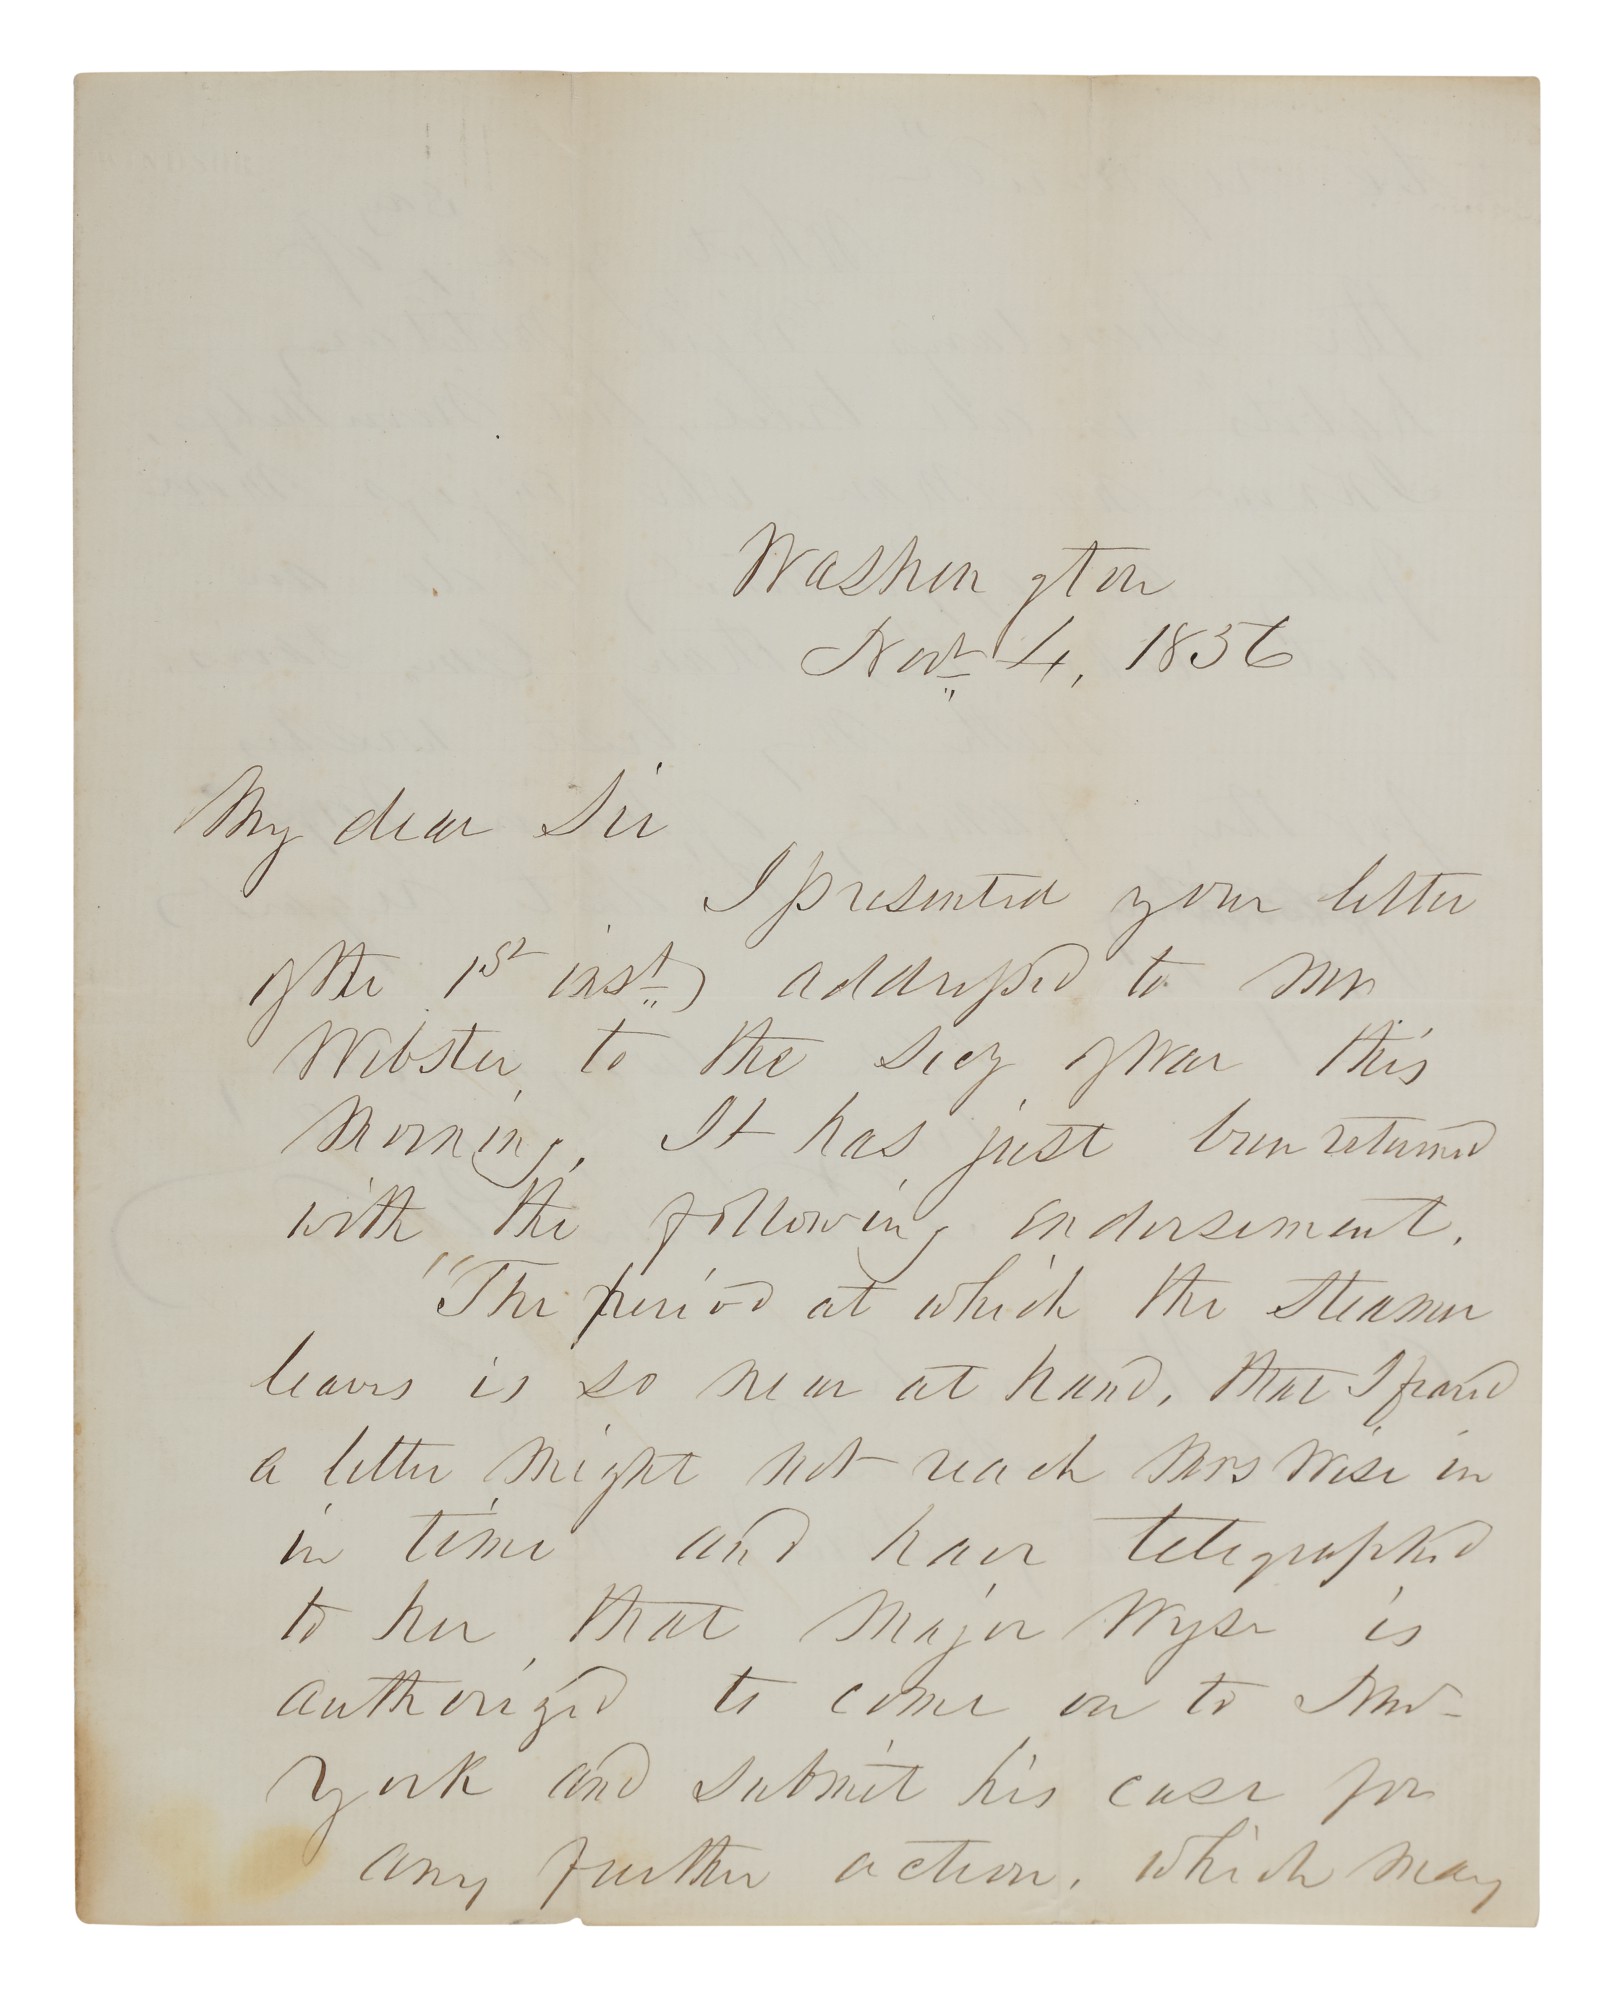 Washington
Novr 4, 1856
My dear Sir
I presented your letter
of the 1st inst, addressed to Mr
Webster to the Secy of War this
Morning. It has just been returned
with the following endorsement.
"The period at which the Steamer
leaves is so near at hand, that I feard
a letter might not reach Mrs Wise in
in time and have telegraphed
to her that Major Wyse is
authorized to come on to New-
York and submit his case for
any further action, which may